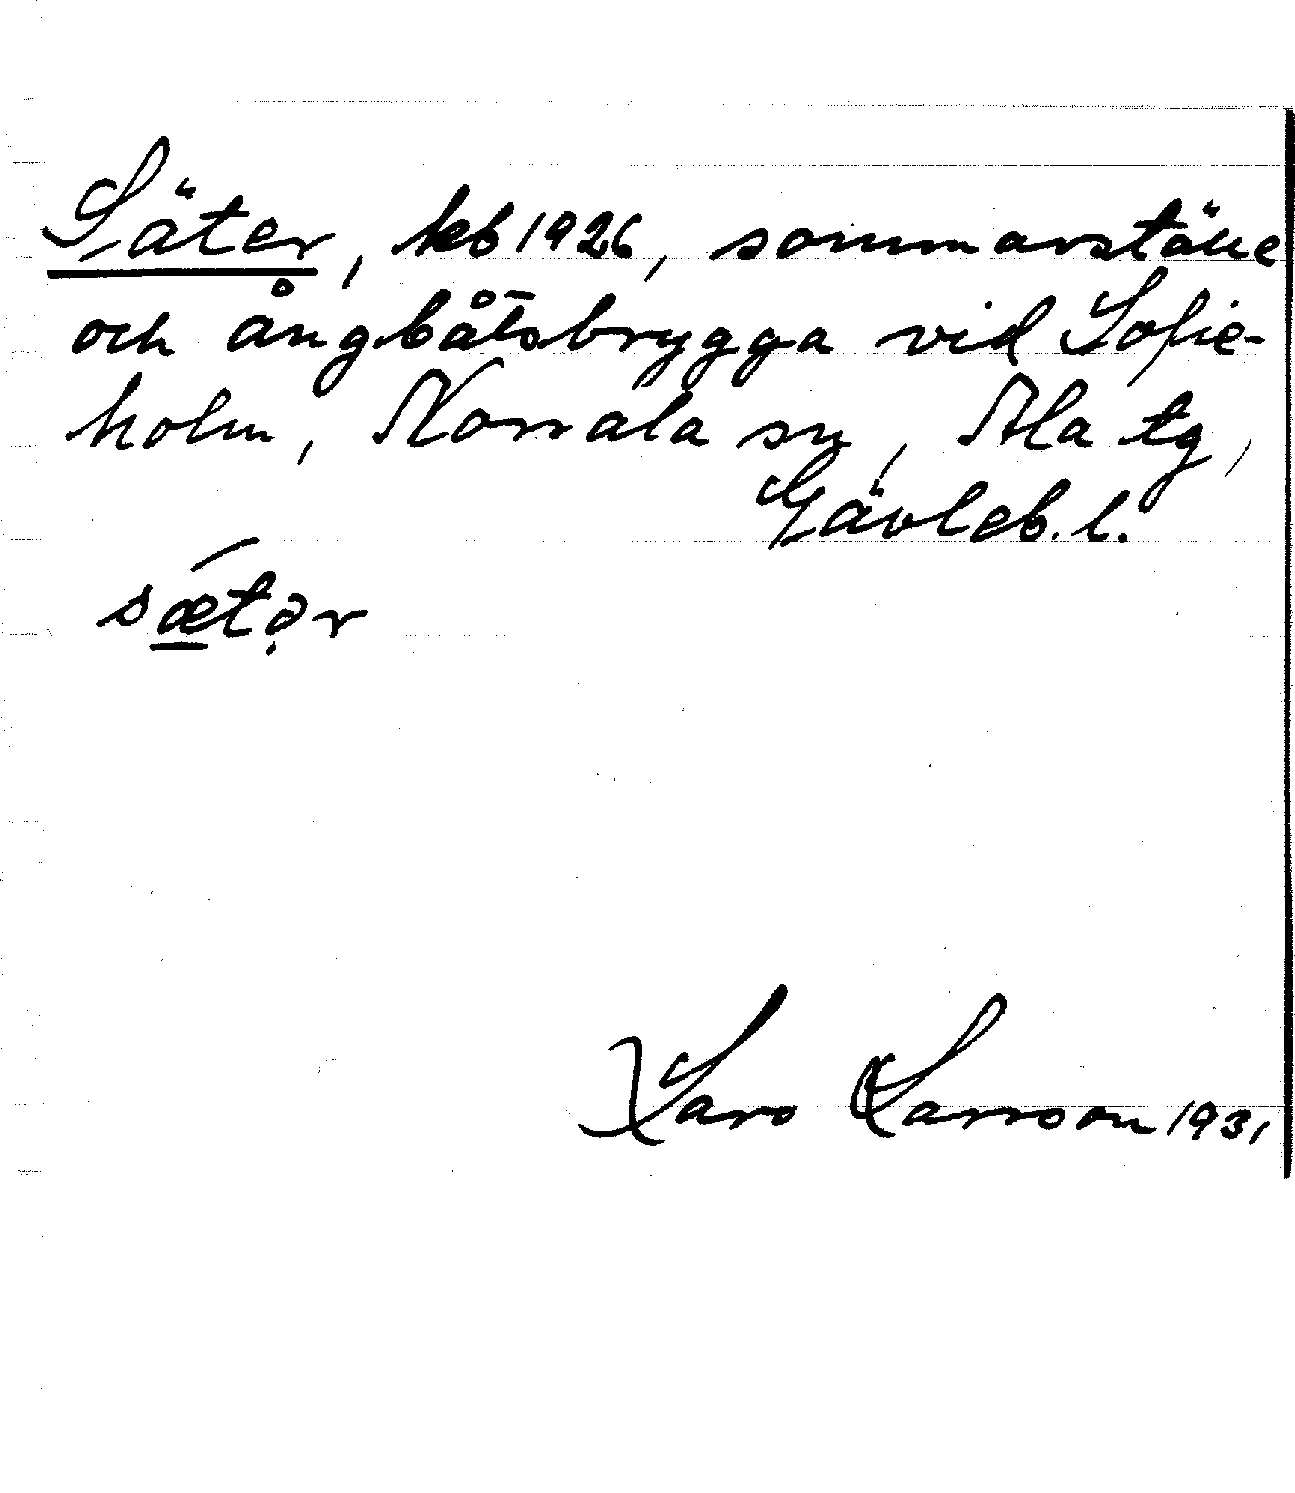 Säter, kb 1926, sommarställe
och ångbåtsbrygga vid Sofie-
holm, Norrala sn, Ala tg,
Gävleb. l.
sǽtər
Lars Larsson 1931